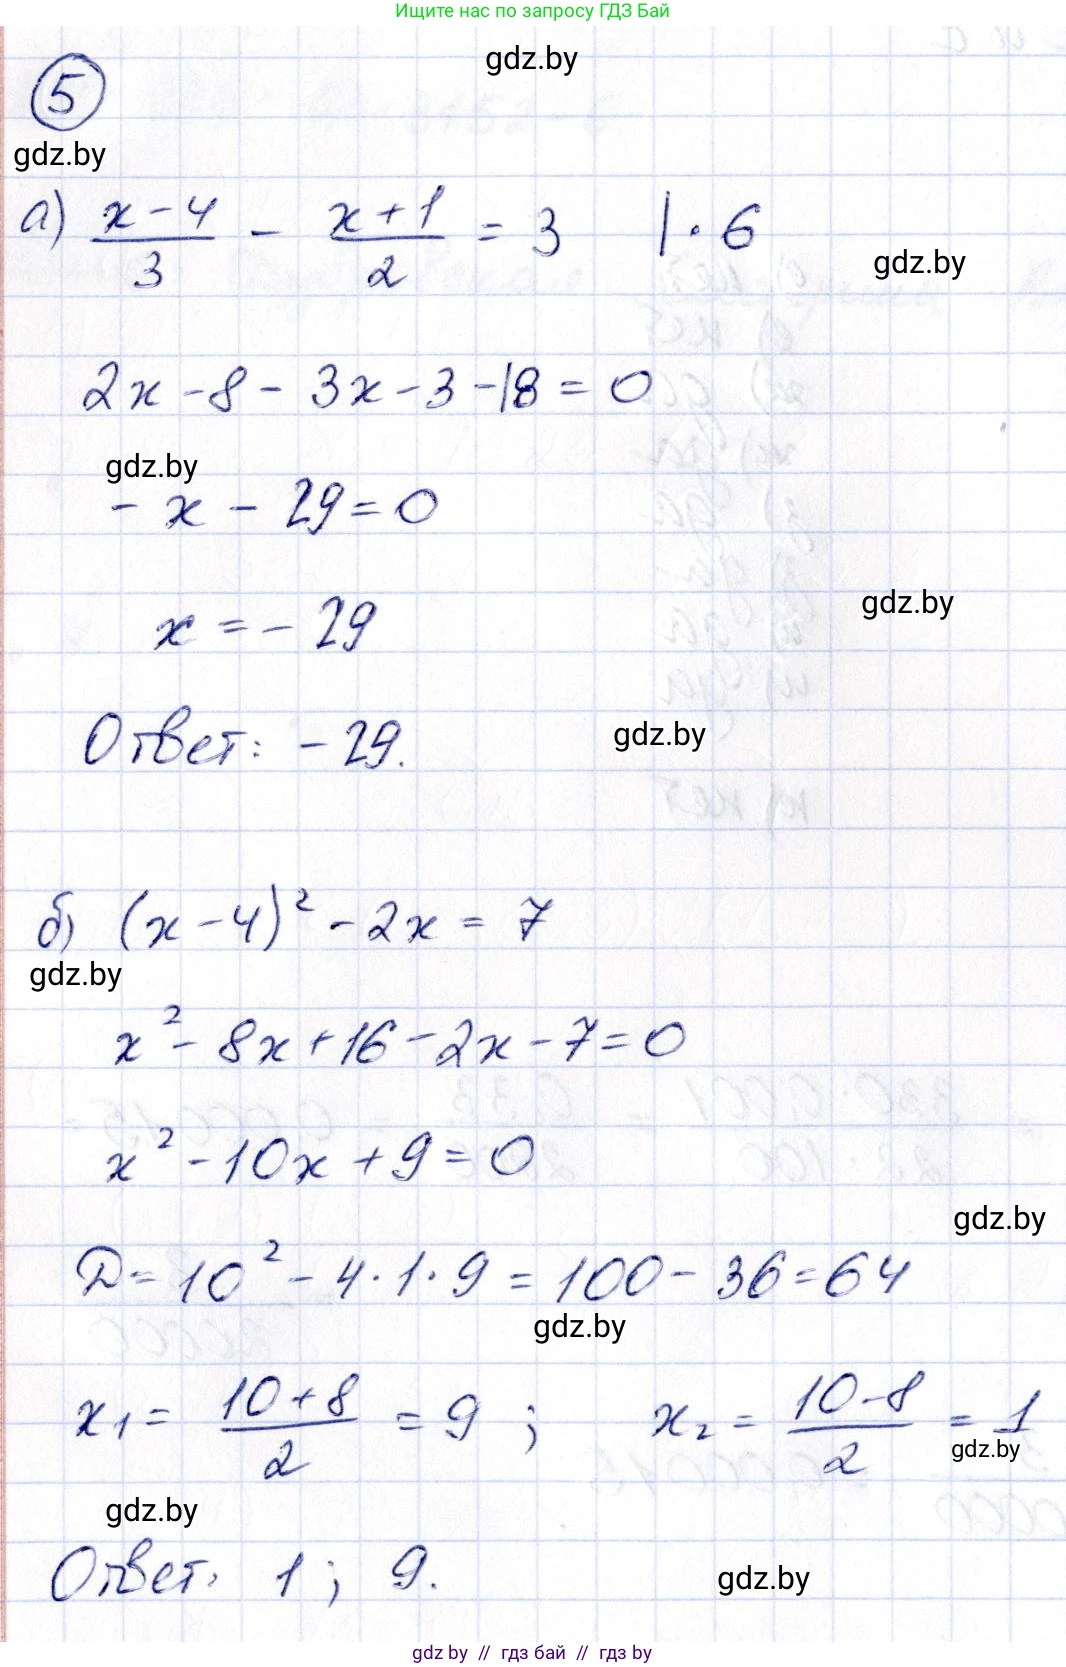 Ищите нас по запросу ГДЗ Бай
gdz.by
5
gdz.by
а) (x-4)/3 - (x+1)/2 = 3 | · 6
gdz.by
2x - 8 - 3x - 3 - 18 = 0
gdz.by
- x - 29 = 0
x = - 29
gdz.by
Ответ: - 29.
gdz.by
б) (x - 4)² - 2x = 7
gdz.by
x² - 8x + 16 - 2x - 7 = 0
x² - 10x + 9 = 0
gdz.by
D = 10² - 4 · 1 · 9 = 100 - 36 = 64
gdz.by
x₁ = (10+8)/2 = 9 ; x₂ = (10-8)/2 = 1
gdz.by
gdz.by
Ответ: 1 ; 9.
gdz.by
gdz by // гдз бай // гдз by